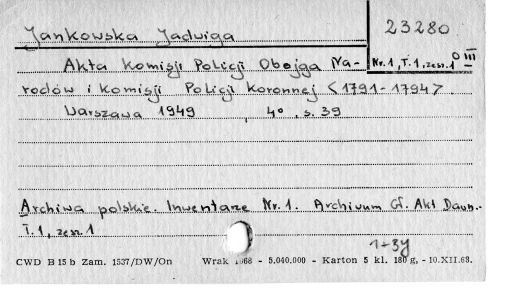 Jankowska Jadwiga
23280
III
Nr. 1, T. 1, zesz. 1
Akta Komisji Policji Obojga Na-
rodów i Komisji Policji Koronnej <1791-1794>.
Warszawa 1949, 4°, s. 39
Archiwa polskie. Inwentarze Nr. 1. Archiwum Gł. Akt Dawn.
T. 1, zesz. 1
CWD B 15 b Zam. 1537/DW/On Wrak 1968 - 5.040.000 - Karton 5 kl. 180 g, - 10.XII.68.